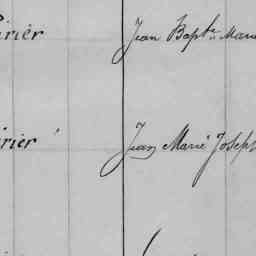 irier Jean Bapte Marie
irier Jean Marie Joseph